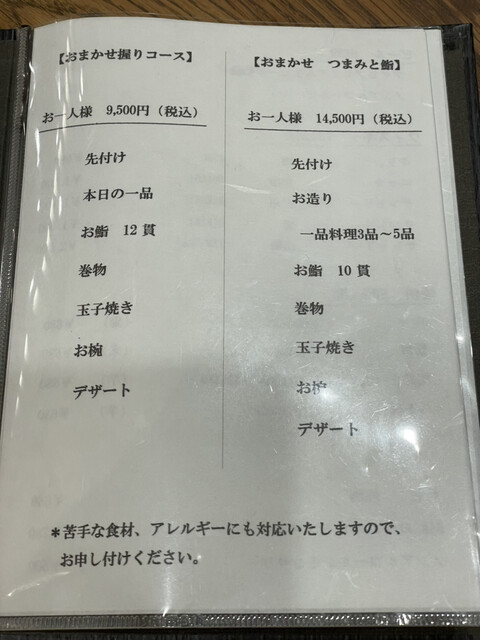 【おまかせ握りコース】
お一人様 9,500円（税込）
先付け
本日の一品
お鮨 12貫
巻物
玉子焼き
お椀
デザート
【おまかせ つまみと鮨】
お一人様 14,500円（税込）
先付け
お造り
一品料理3品～5品
お鮨 10貫
巻物
玉子焼き
お椀
デザート
＊苦手な食材、アレルギーにも対応いたしますので、
お申し付けください。